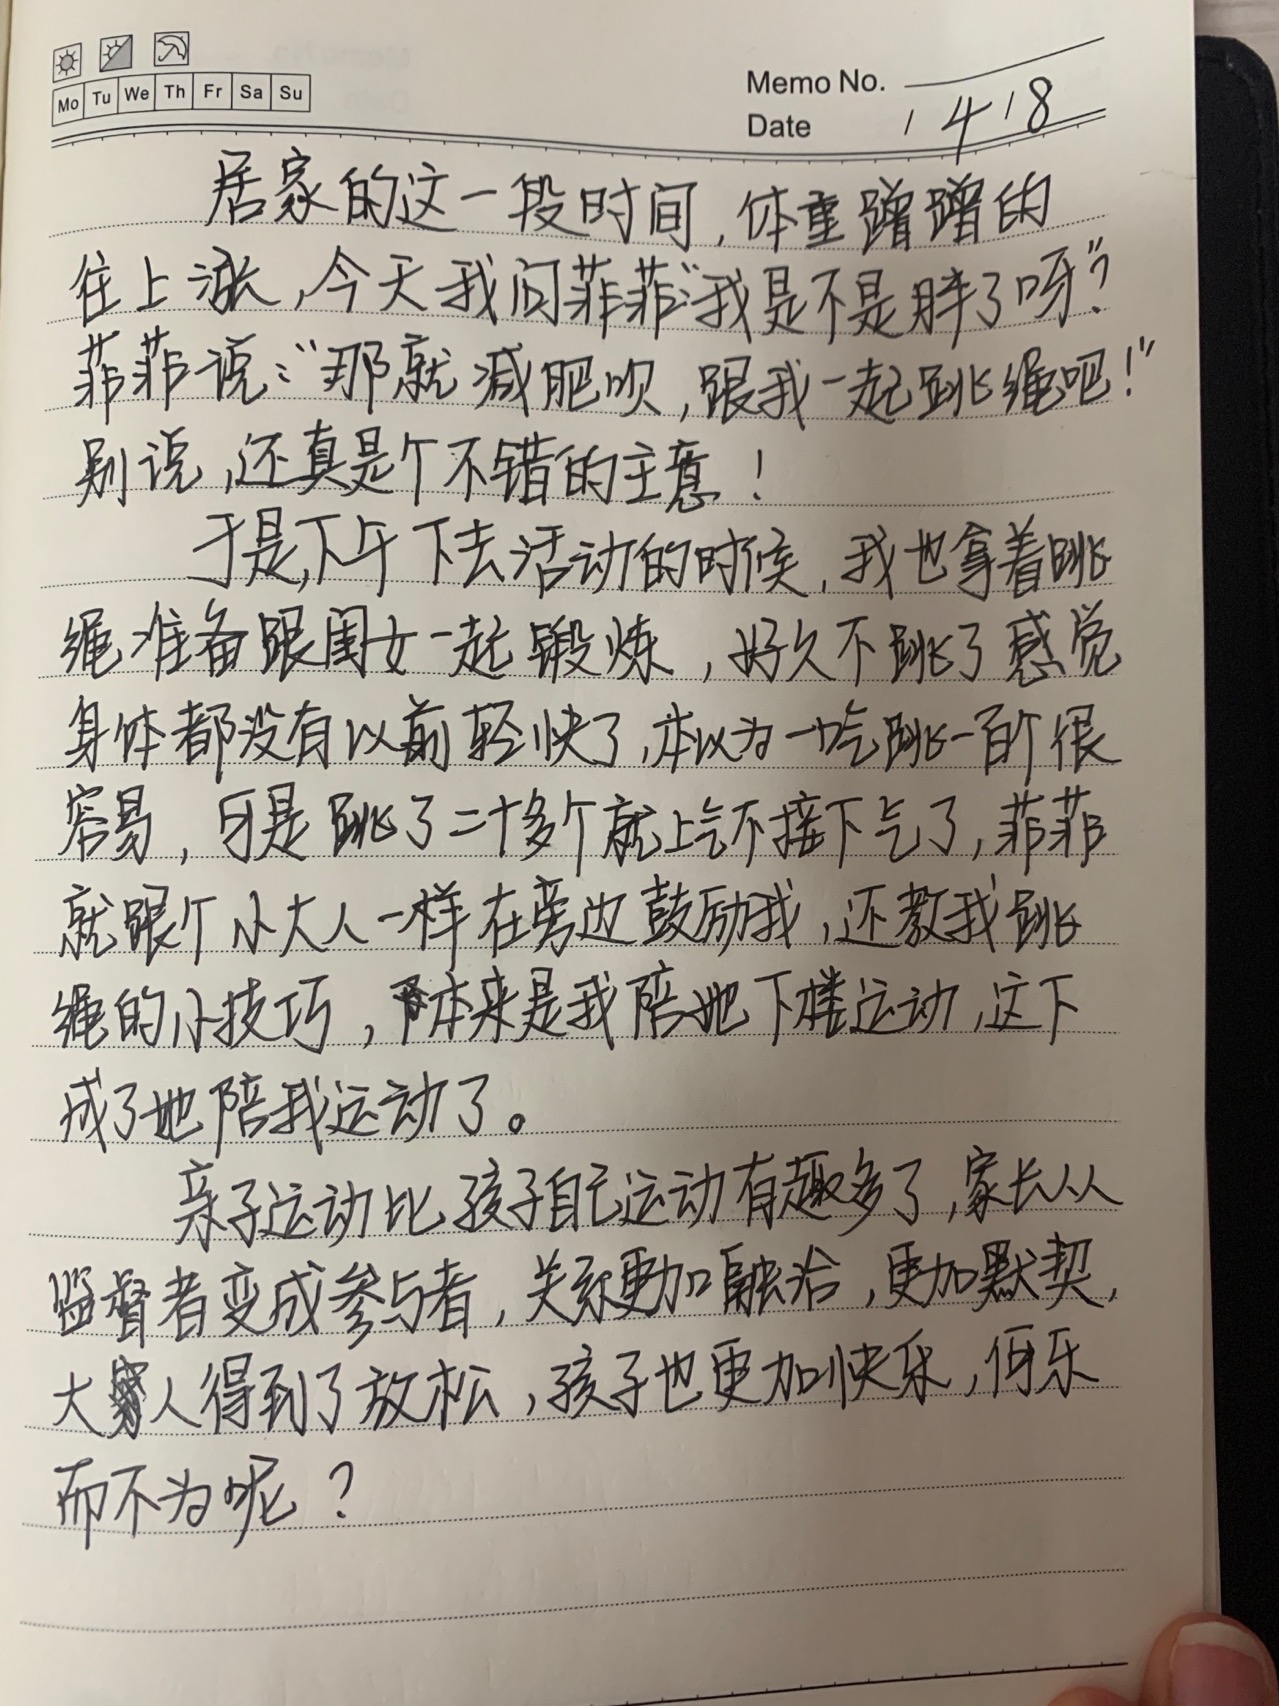 Mo Tu We Th Fr Sa Su
Memo No.
Date 4 18
居家的这一段时间，体重蹭蹭的
往上涨，今天我问菲菲“我是不是胖了呀”？
菲菲说：“那就减肥呗，跟我一起跳绳吧！”
别说，还真是个不错的主意！
于是，下午下去活动的时候，我也拿着跳
绳准备跟闺女一起锻炼，好久不跳了感觉
身体都没有以前轻快了，本以为一口气跳一百个很
容易，可是跳了二十多个就上气不接下气了，菲菲
就跟个小大人一样在旁边鼓励我，还教我跳
绳的小技巧，本来是我陪她下楼运动，这下
成了她陪我运动了。
亲子运动比孩子自己运动有趣多了，家长从
监督者变成参与者，关系更加融洽，更加默契，
大人得到了放松，孩子也更加快乐，何乐
而不为呢？